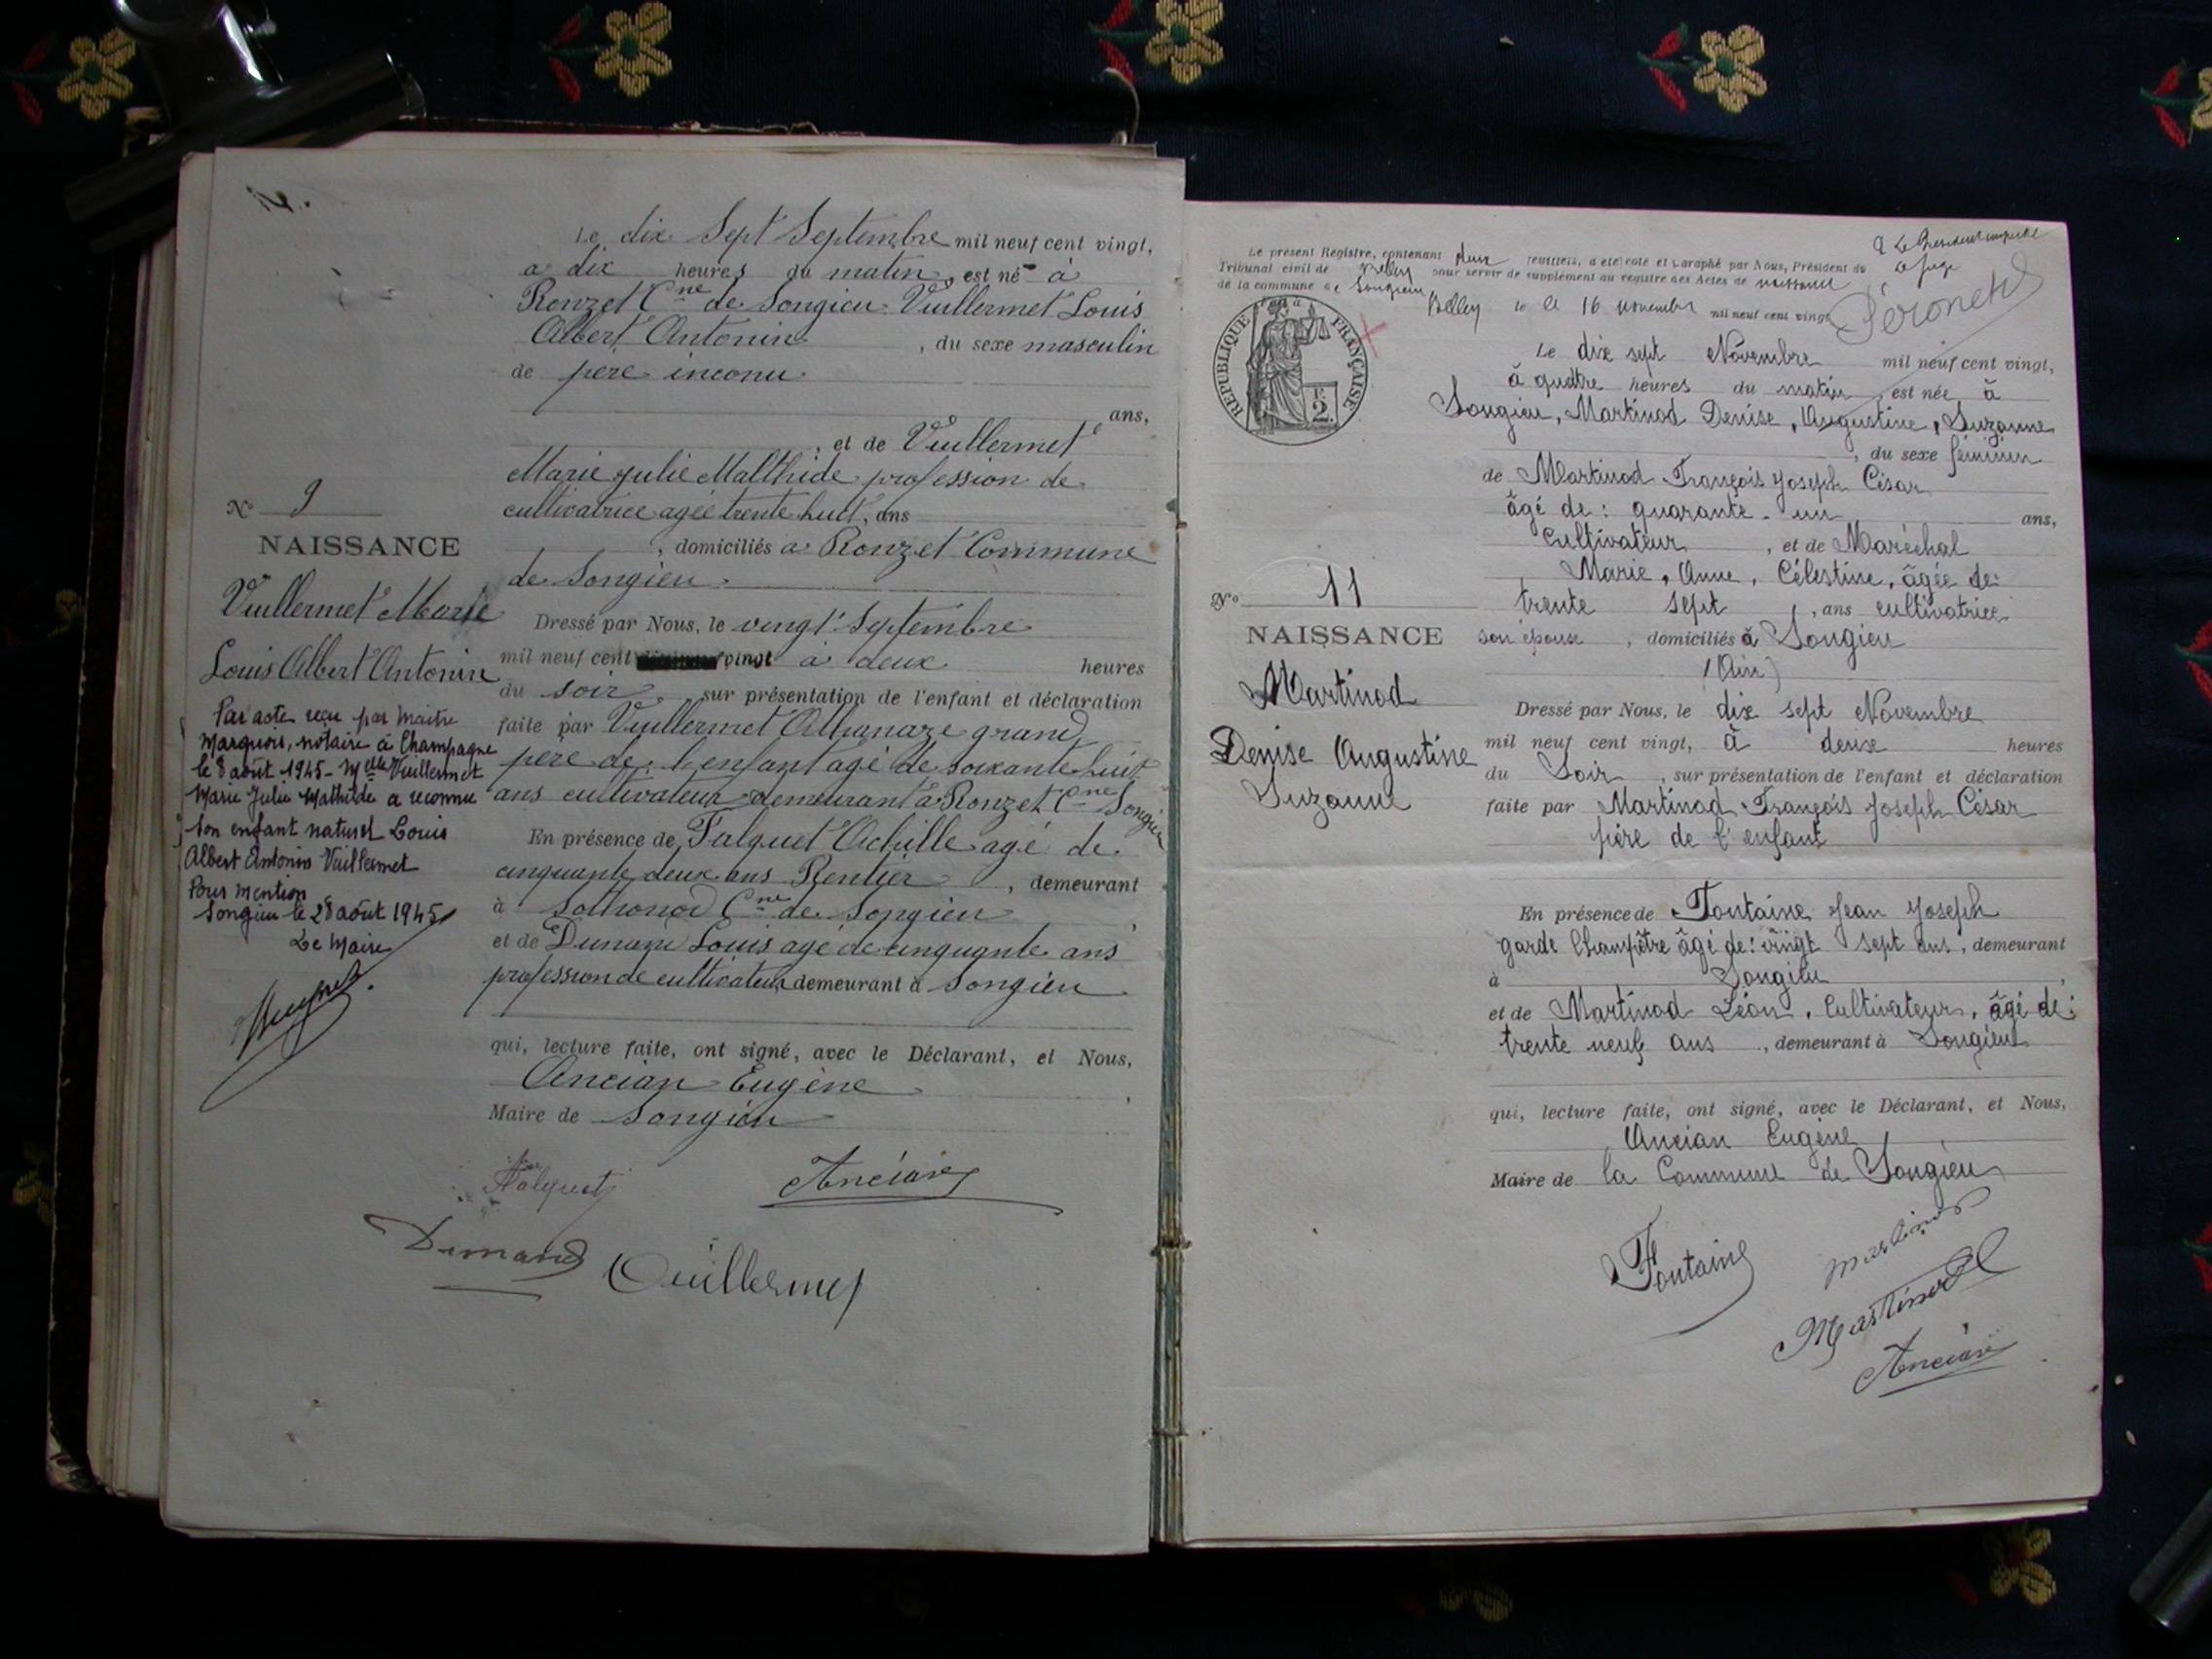 Le dix Sept Septembre mil neuf cent vingt,
a dix heures du matin, est né à
Ronzet Cne de Songieu Vuillermet Louis
Albert Antonin, du sexe masculin
de père inconu
ans,
, et de Vuillermet
Marie Julie Malthide profession de
cultivatrice agée trente huit, ans
, domiciliés à Ronzet Commune
de Songieu
No 9
NAISSANCE
Vuillermet Marie
Louis Albert Antonin
Par acte reçu par Maitre
Marquois, notaire à Champagne
le 8 août 1945 - Melle Vuillermet
Marie Julie Mathilde a reconnu
son enfant naturel Louis
Albert Antonin Vuillermet
Pour mention
Songieu le 28 août 1945
Le Maire
Dressé par Nous, le vingt Septembre
mil neuf cent vingt à deux heures
du soir, sur présentation de l'enfant et déclaration
faite par Vuillermet Athanaze grand
père de l'enfant agé de soixante huit
ans cultivateur demeurant à Ronzet Cne Songieu
En présence de Falquet Achille agé de
cinquante deux ans Rentier, demeurant
à Sothonod Cne de Songieu
et de Dunand Louis agé de cinquante ans
profession de cultivateur demeurant à Songieu
qui, lecture faite, ont signé, avec le Déclarant, et Nous,
Ancian Eugène
Maire de Songieu
Falquet
Ancian
Dunand
Vuillermet
Le présent Registre, contenant deux feuillets, a été coté et paraphé par Nous, Président du
Tribunal civil de Belley pour servir de supplément au registre des Actes de naissance
de la commune de Songieu
Belley le 16 novembre mil neuf cent vingt
Le juge
Péronet
RÉPUBLIQUE FRANÇAISE
2
Le dix sept Novembre mil neuf cent vingt,
à quatre heures du matin, est née à
Songieu, Martinod Denise, Augustine, Suzanne
, du sexe féminin
de Martinod François Joseph César
âgé de: quarante-un ans,
Cultivateur, et de Maréchal
Marie, Anne, Célestine, âgée de:
trente sept, ans cultivatrice
son épouse, domiciliés à Songieu
(Ain)
No 11
NAISSANCE
Martinod
Denise Augustine
Suzanne
Dressé par Nous, le dix sept Novembre
mil neuf cent vingt, à deux heures
du Soir, sur présentation de l'enfant et déclaration
faite par Martinod François Joseph César
père de l'enfant
En présence de Fontaine Jean Joseph
garde Champêtre âgé de: vingt sept ans, demeurant
à Songieu,
et de Martinod Léon, Cultivateur, âgé de:
trente neuf ans, demeurant à Songieu
qui, lecture faite, ont signé, avec le Déclarant, et Nous,
Ancian Eugène
Maire de la Commune de Songieu
Fontaine
Martinod
Martinod
Ancian